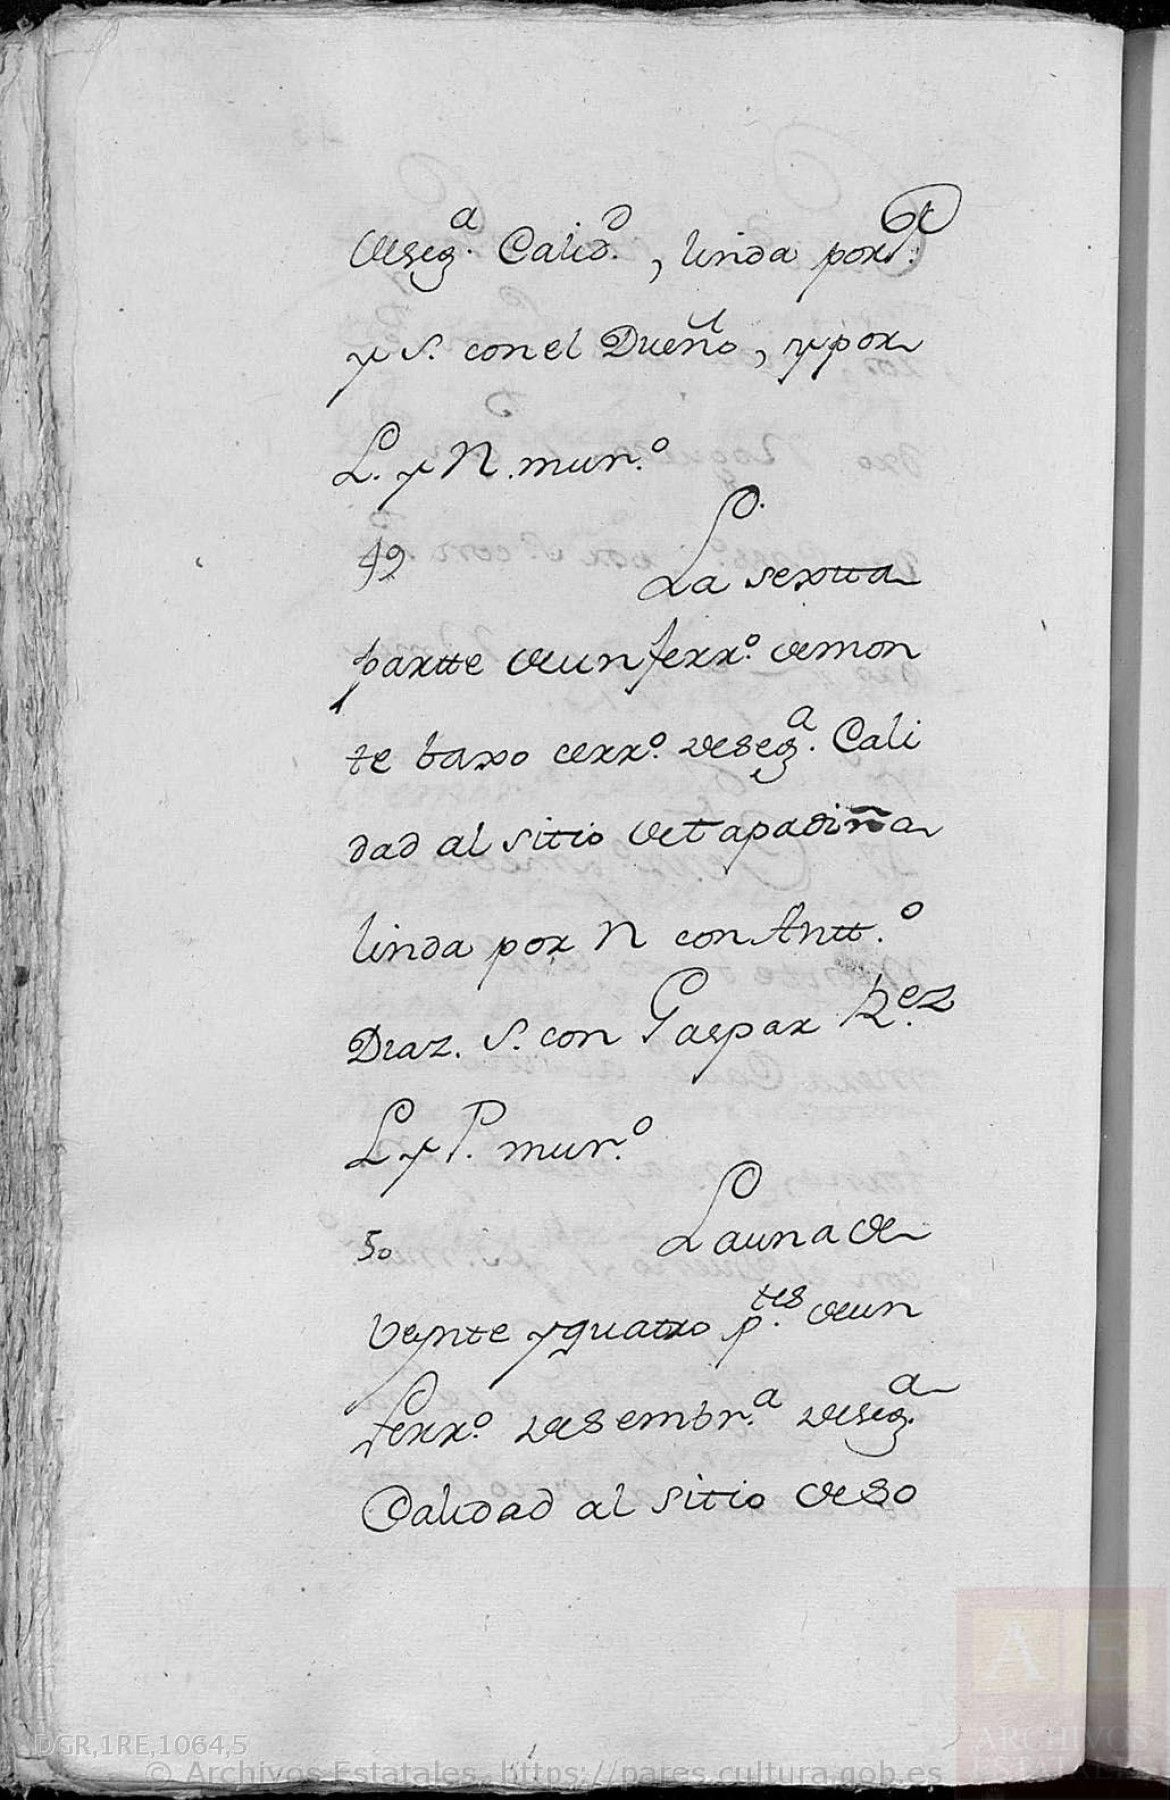 deseg.ª Calid.ᵈ, linda por P.
y S. con el Dueño, y por
L. y N. mur.º
49 La sextta
partte de un ferr.º de mon
te baxo cerr.º de seg.ª Cali
dad al sitio de tapadiña
linda por N con Antt.º
Diaz. S. con Gaspar Rˢᵉᶻ
L y P. mur.º
50 La una de
veynte y quatro p.ᵗᵉˢ de un
ferr.º de sembr.ª de seg.ª
Calidad al sitio de So
DGR,1RE,1064,5
© Archivos Estatales, https://pares.cultura.gob.es
AE
ARCHIVOS
ESTATALES